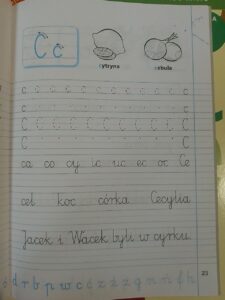 C c
cytryna cebula
c c
c c
C C
C C
ca co cy ic uc ec oc Ce
cel koc córka Cecylia
Jacek i Wacek byli w cyrku.
23